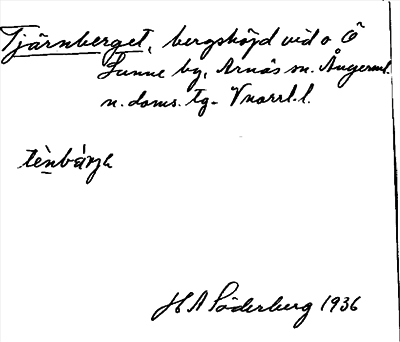 Tjärnberget, bergshöjd vid o Ö
Sunne by, Arnäs sn. Ångerml.
n. doms. tg. Vnorrl. l.
tènbárjɛ
H A Söderberg 1936